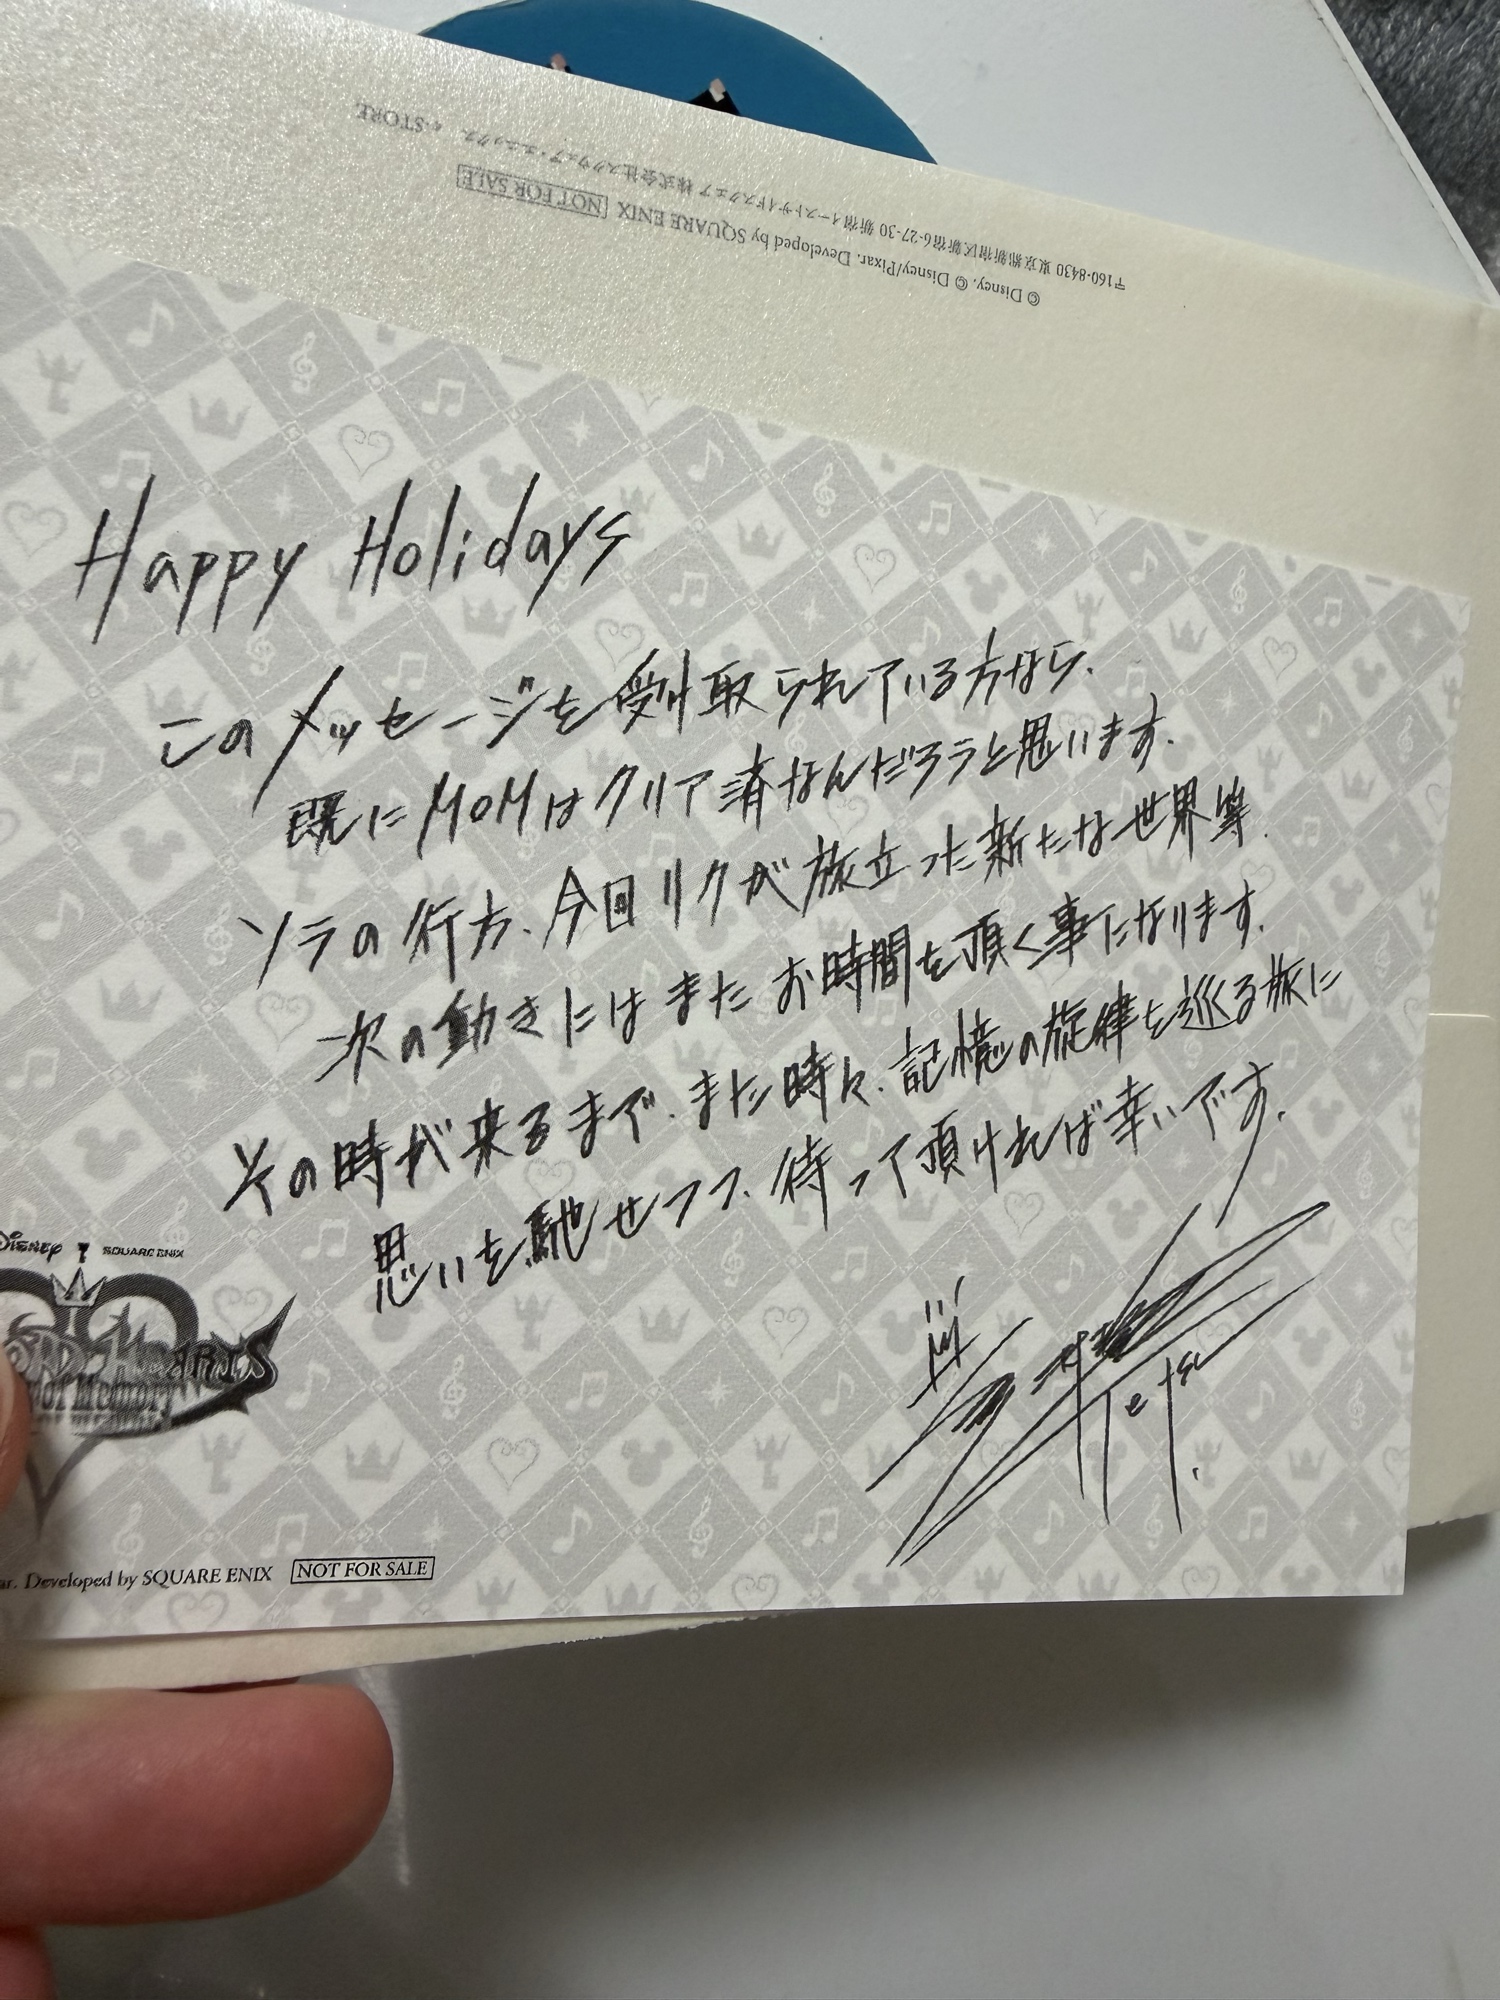 〒160-8430 東京都新宿区新宿6-27-30 新宿イーストサイドスクエア 株式会社スクウェア・エニックス e-STORE
© Disney. © Disney/Pixar. Developed by SQUARE ENIX NOT FOR SALE
Happy Holidays
このメッセージを受け取られている方なら、
既にMOMはクリア済なんだろうと思います。
ソラの行方、今回リクが旅立った新たな世界等、
次の動きにはまたお時間を頂く事になります。
その時が来るまで、また時々、記憶の旋律を巡る旅に
思いを馳せつつ、待って頂ければ幸いです。
Tetsu.
Disney SQUARE ENIX
HEARTS
of Memory
ar. Developed by SQUARE ENIX NOT FOR SALE